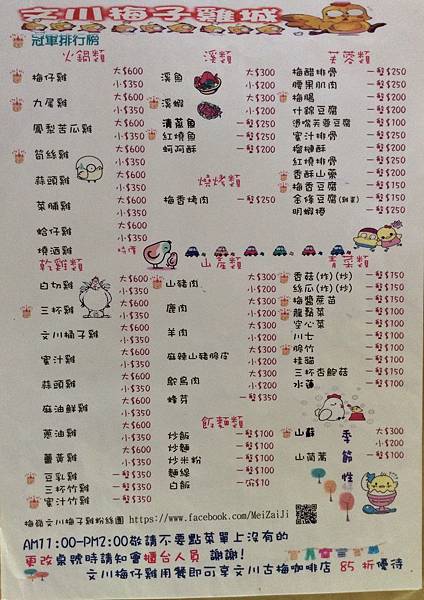 文川梅子雞城
冠軍排行榜
火鍋類
梅仔雞 大$600 小$350
九尾雞 大$600 小$350
鳳梨苦瓜雞 大$600 小$350
筍絲雞 大$600 小$350
蒜頭雞 大$600 小$350
菜脯雞 大$600 小$350
蛤仔雞 大$600 小$350
燒酒雞 時價
乾雞類
白切雞 大$600 小$350
三杯雞 大$600 小$350
文川橘子雞 大$600 小$350
蜜汁雞 大$600 小$350
蒜頭雞 大$600 小$350
麻油鮮雞 大$600 小$350
蔥油雞 大$600 小$350
薑黃雞 大$600 小$350
豆乳雞 一盤$350
三杯竹雞 一盤$350
蜜汁竹雞 一盤$350
溪類
溪魚 大$300 小$200
溪蝦 大$300 小$200
清蒸魚 一盤$250
紅燒魚 一盤$250
蚵阿酥 一盤$200
燒烤類
梅香烤肉 一盤$250
山產類
山豬肉 大$300 小$200
鹿肉 大$300 小$200
羊肉 大$300 小$200
麻辣山豬腳皮 大$300 小$200
鴕鳥肉 大$300 小$200
蜂芽 一盤$350
飯麵類
炒飯 一盤$100
炒麵 一盤$100
炒米粉 一盤$100
麵線 一盤$100
白飯 一碗$10
芙蓉類
梅醋排骨 一盤$250
腰果肌肉 一盤$250
梅腸 一盤$200
什錦豆腐 一盤$200
燙嘴芙蓉豆腐 一盤$100
蜜汁排骨 一盤$250
榴槤酥 一盤$200
紅燒排骨 一盤$250
香酥山藥 一盤$200
梅香豆腐 一盤$150
金條豆腐(雞蛋) 一盤$150
明蝦捲 一盤$250
青菜類
香菇(炸)(炒) 一盤$150
絲瓜(炸)(炒) 一盤$150
梅醬蔗苗 一盤$150
龍鬚菜 一盤$100
空心菜 一盤$100
川七 一盤$100
脆竹 一盤$100
桂貓 一盤$100
三杯杏鮑菇 一盤$150
水蓮 一盤$100
季節性
山蘇 大$300 小$200
山茼蒿 一盤$100
梅嶺文川梅子雞粉絲團 https://www.facebook.com/MeiZaiJi
AM11:00-PM2:00敬請不要點菜單上沒有的
更改桌號時請知會櫃台人員 謝謝!
文川梅仔雞用餐即可享文川古梅咖啡店 85 折優待